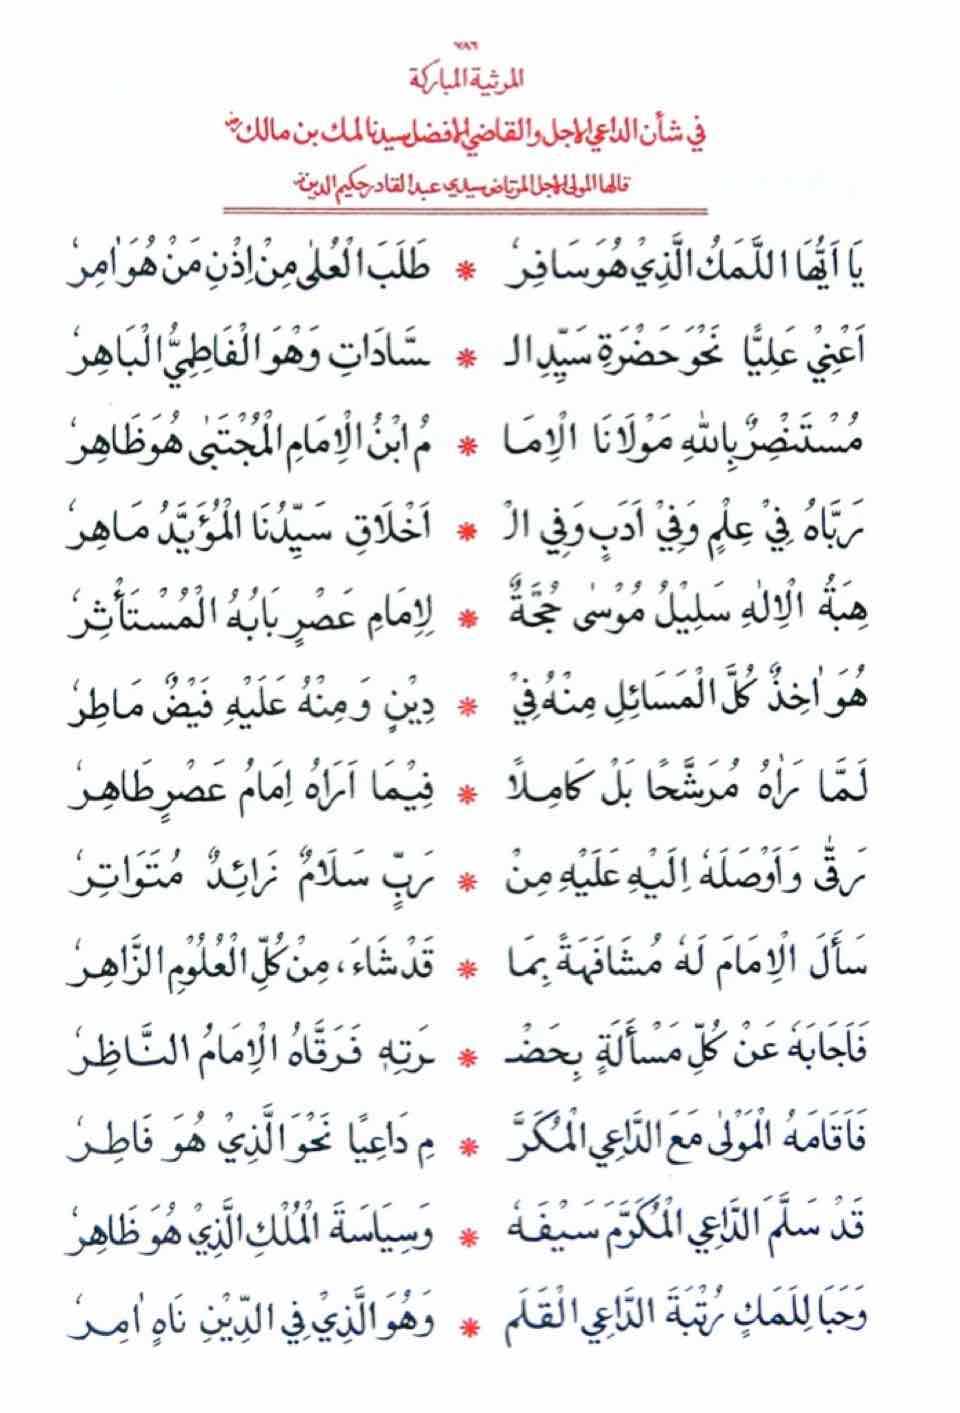 ٧٨٦
المرثية المباركة
في شأن الداعي الاجل والقاضي الافضل سيدنا لمك بن مالك رض
قالها المولى الاجل المرتاض سيدي عبد القادر حكيم الدين
يَا اَيُّهَا اللَّمَكُ الَّذِيْ هُوَ سَافِرٗ * طَلَبَ الْعُلٰى مِنْ اِذْنِ مَنْ هُوَ اٰمِرٗ
اَعْنِيْ عَلِيًّا نَحْوَ حَضْرَةِ سَيِّدِ الـ * ـسَّادَاتِ وَهْوَ الْفَاطِمِيُّ الْبَاهِرٗ
مُسْتَنْصِرٌ بِاللهِ مَوْلَانَا الْاِمَا * مُ ابْنُ الْاِمَامِ الْمُجْتَبٰى هُوَ ظَاهِرٗ
رَبَّاهُ فِيْ عِلْمٍ وَفِيْ اَدَبٍ وَفِي الْـ * اَخْلَاقِ سَيِّدُنَا الْمُؤَيَّدُ مَاهِرٗ
هِبَةُ الْاِلٰهِ سَلِيْلُ مُوْسٰى حُجَّةٌ * لِاِمَامِ عَصْرٍ بَابُهُ الْمُسْتَأْثِرٗ
هُوَ اٰخِذٌ كُلَّ الْمَسَائِلِ مِنْهُ فِيْ * دِيْنٍ وَمِنْهُ عَلَيْهِ فَيْضٌ مَاطِرٗ
لَمَّا رَاٰهُ مُرَشَّحًا بَلْ كَامِلًا * فِيْمَا اَرَاهُ اِمَامُ عَصْرٍ طَاهِرٗ
رَقّٰى وَاَوْصَلَهٗ اِلَيْهِ عَلَيْهِ مِنْ * رَبٍّ سَلَامٌ زَائِدٌ مُتَوَاتِرٗ
سَأَلَ الْاِمَامَ لَهٗ مُشَافَهَةً بِمَا * قَدْ شَاءَ، مِنْ كُلِّ الْعُلُوْمِ الزَّاهِرٗ
فَاَجَابَهٗ عَنْ كُلِّ مَسْأَلَةٍ بِحَضْـ * ـرَتِهٖ فَرَقَّاهُ الْاِمَامُ النَّاظِرٗ
فَاَقَامَهُ الْمَوْلٰى مَعَ الدَّاعِي الْمُكَرَّ * مِ دَاعِيًا نَحْوَ الَّذِيْ هُوَ فَاطِرٗ
قَدْ سَلَّمَ الدَّاعِي الْمُكَرَّمَ سَيْفَهٗ * وَسِيَاسَةَ الْمُلْكِ الَّذِيْ هُوَ ظَاهِرٗ
وَحَبَا لِلَمَكٍ رُتْبَةَ الدَّاعِي الْقَلَمِ * وَهُوَ الَّذِيْ فِي الدِّيْنِ نَاهٍ اٰمِرٗ